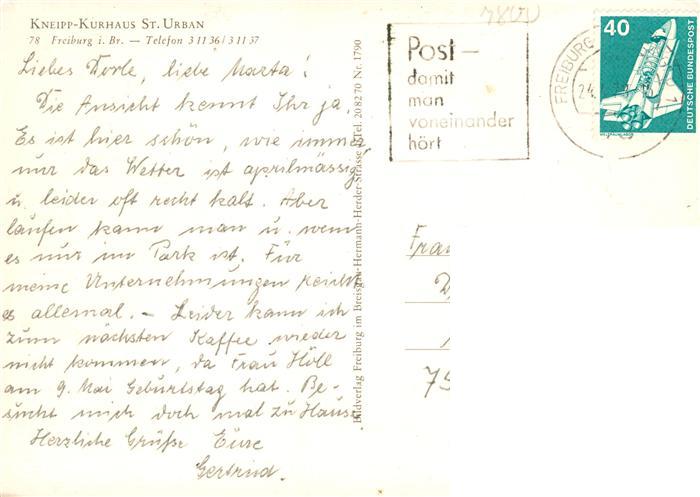 KNEIPP-KURHAUS ST. URBAN
78 Freiburg i. Br. — Telefon 3 11 36 / 3 11 37
Liebes Dorle, liebe Marta!
Die Ansicht kennt Ihr ja.
Es ist hier schön, wie immer
nur das Wetter ist aprilmässig
u. leider oft recht kalt. Aber
laufen kann man u. wenn
es nur im Park ist. Für
meine Unternehmungen reicht
es allemal. – Leider kann ich
zum nächsten Kaffee wieder
nicht kommen, da Frau Höll
am 9. Mai Geburtstag hat. Be-
sucht mich doch mal zu Hause
Herzliche Grüße Eure
Gertrud.
Bildverlag Freiburg im Breisgau · Hermann-Herder-Strasse · Tel. 20 82 70 Nr. 1790
Post –
damit
man
voneinander
hört
FREIBURG
24.
40
DEUTSCHE BUNDESPOST
WELTRAUMLABOR
Frau
75